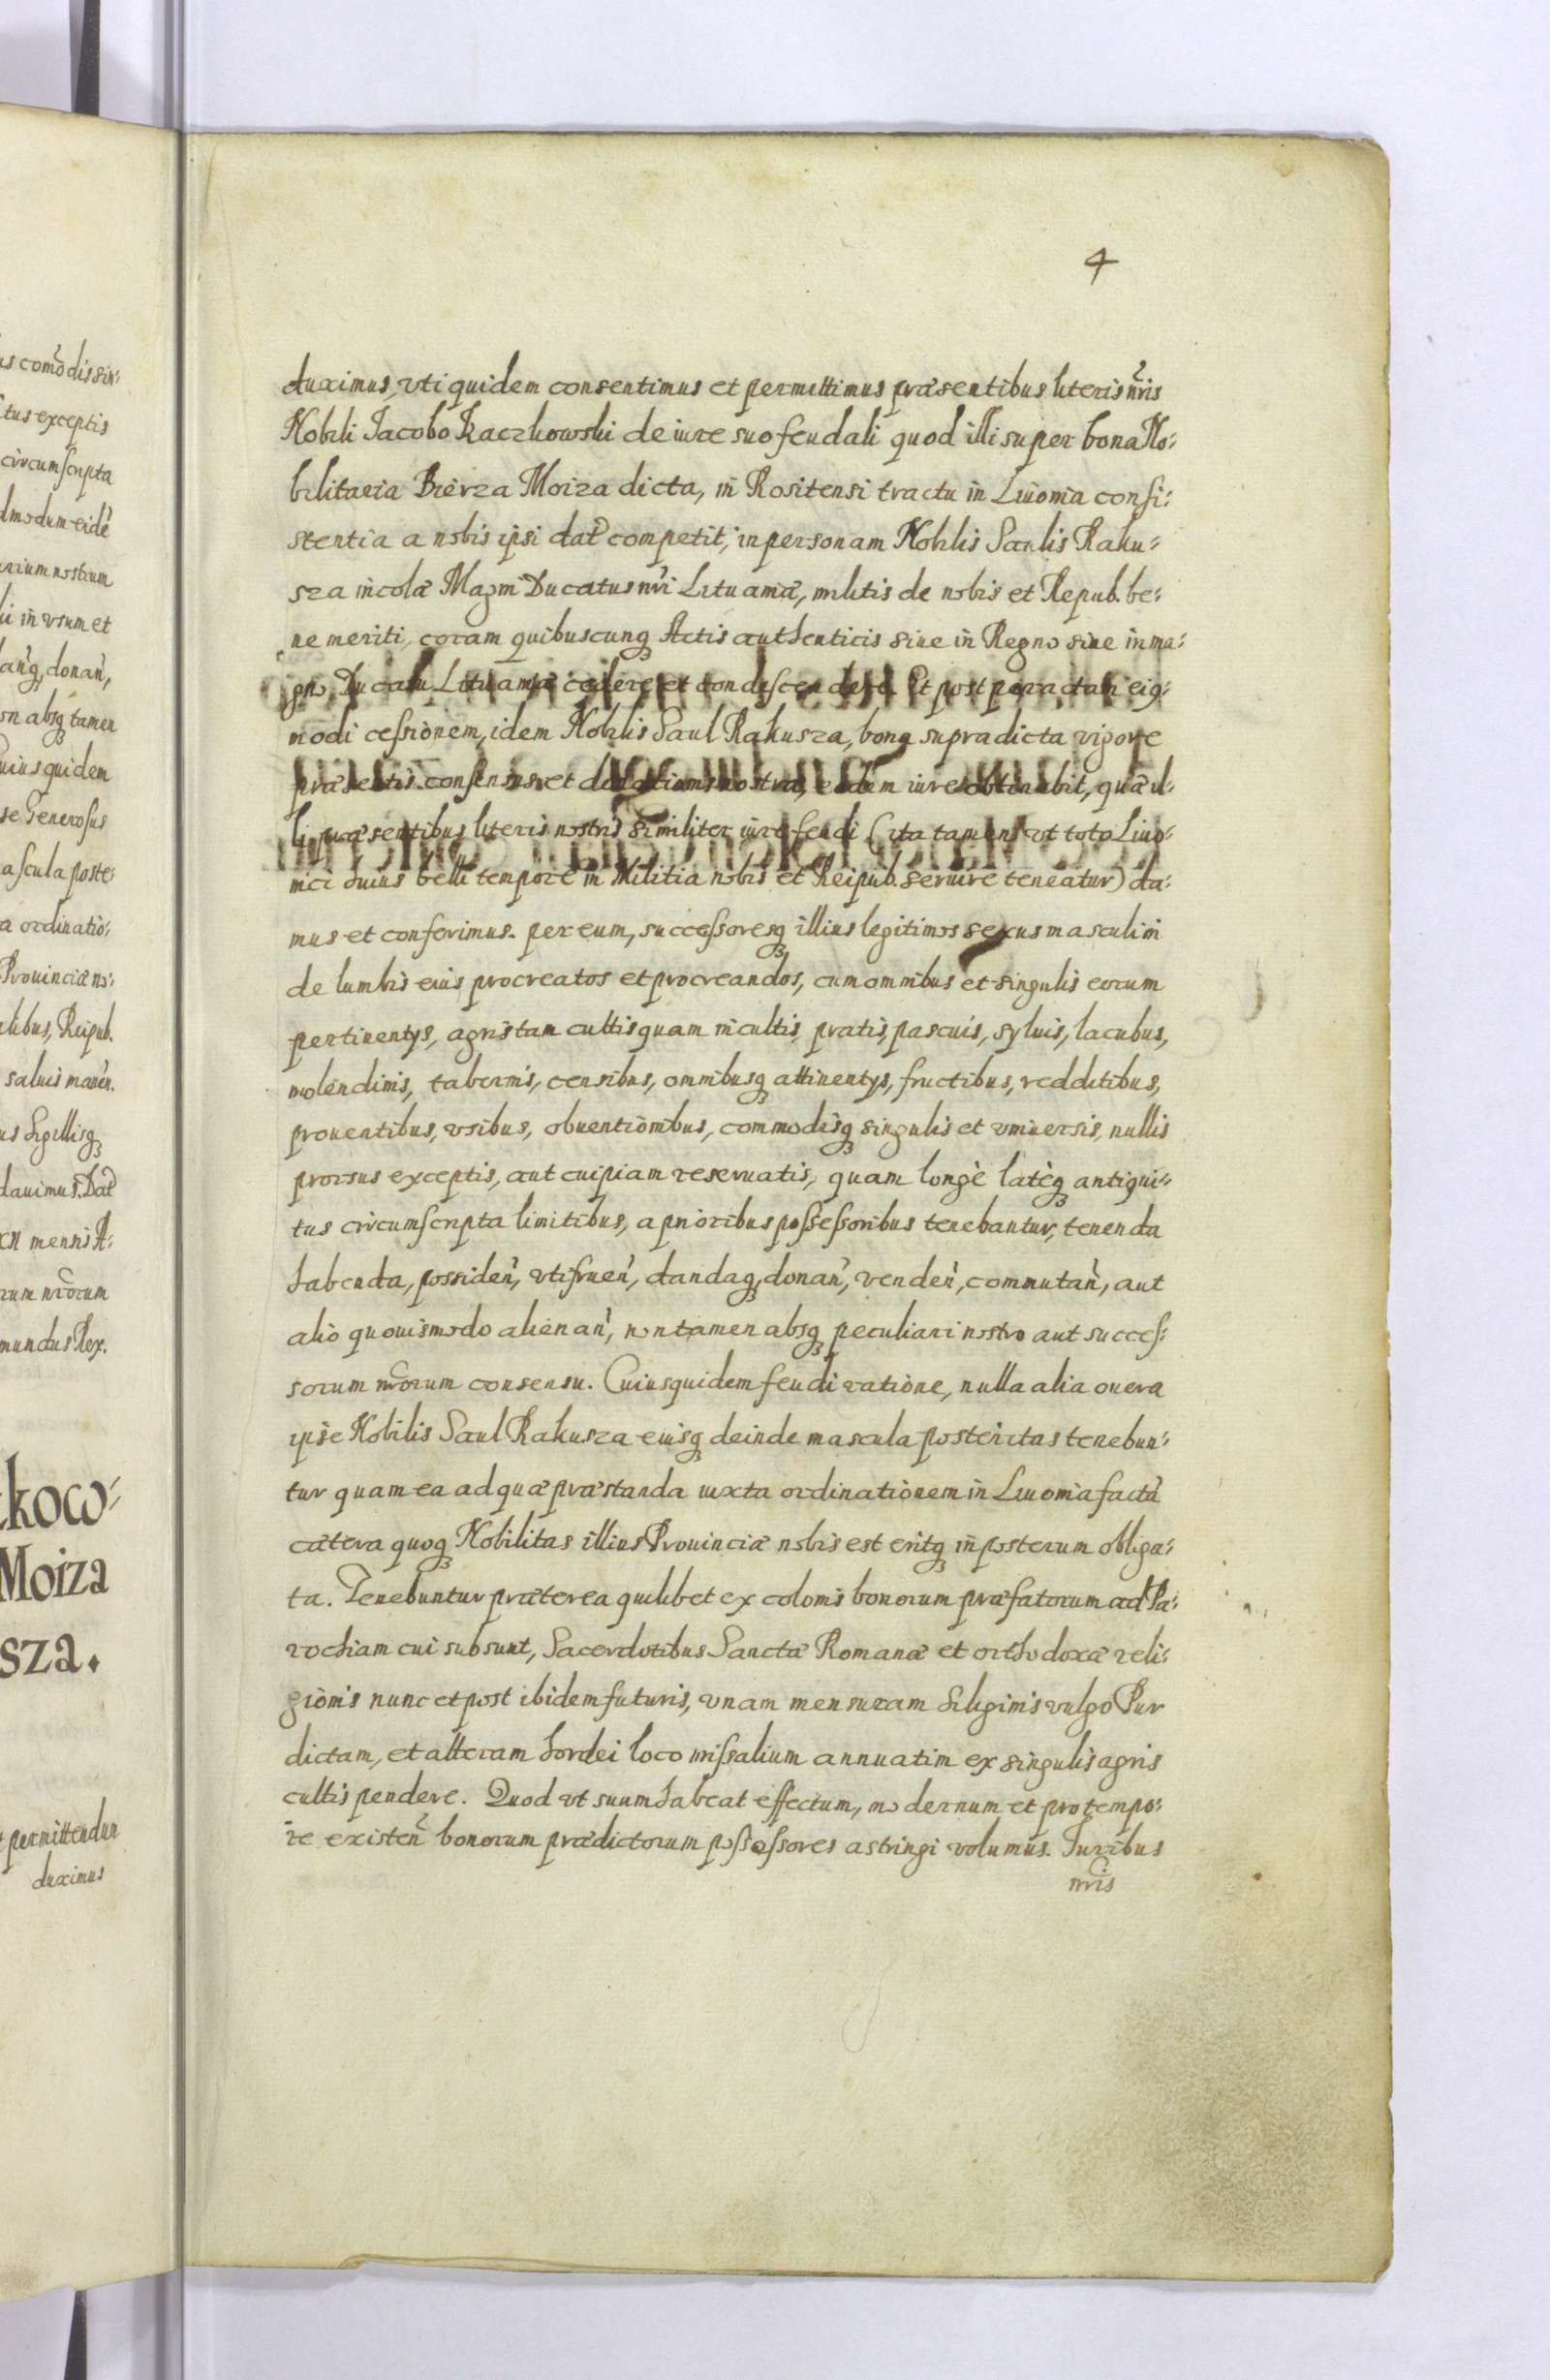 us com̃odissim̃:
tus exceptis
circumscripta
dmodum eidẽ
arium nostrum
li in vsum et
danq́, donan̄,
on absq́ tamen
uius quidem
se Generosus
ascula poste:
a ordinatio:
Prouinciæ no:
libus, Reipub.
saluis manen̄.
us Sigillisq́
dauimus. Dat̃
mensis A:
rum nr̃orum
mundus Rex.
tkow:
Moiza
sza.
permittendum
duximus
4
duximus, vti quidem consentimus et permittimus præsentibus literis nr̃is
Nobili Jacobo Kaczkowski de iure suo feudali quod illi super bona No:
bilitaria Bierza Moiza dicta, in Rositensi tractu in Liuonia consi:
stentia a nobis ipsi dat̃ competit, in personam Nobilis Saulis Raku:
sza incolæ Magni Ducatus nr̃i Lituaniæ, militis de nobis et Repub. be:
ne meriti, coram quibuscunq́ Actis authenticis siue in Regno siue in ma:
gno Ducatu Lituaniæ cedere et condescendere. Et post peractam eiq́:
modi cessionem, idem Nobilis Saul Rakusza, bona supradicta vigore
præsentis consensus et donationis nostræ, eodem iure obtinebit, quæ il:
li præsentibus literis nostris similiter iure feudi (ita tamen vt toto Liuo:
nici huius belli tempore in Militia nobis et Reipub. seruire teneatur) da:
mus et conferimus. per eum, successoresq́ illius legitimos sexus masculini
de lumbis eius procreatos et procreandos, cum omnibus et singulis eorum
pertinentys, agris tam cultis quam incultis, pratis, pascuis, syluis, lacubus,
molendinis, tabernis, censibus, omnibusq́ attinentys, fructibus, redditibus,
prouentibus, vsibus, obuentionibus, commodisq́ singulis et vniuersis, nullis
prorsus exceptis, aut cuipiam reseruatis, quam longè latèq́ antiqui:
tus circumscripta limitibus, a prioribus possessoribus tenebantur, tenenda
habenda, possiden̄, vtifruen̄, dandaq́, donan̄, venden̄, commutan̄, aut
alio quouismodo alienan̄, non tamen absq́ peculiari nostro aut succes:
sorum nr̃orum consensu. Cuiusquidem feudi ratione, nulla alia onera
ipse Nobilis Saul Rakusza eiusq́ deinde mascula posteritas tenebun:
tur quam ea ad quæ præstanda iuxta ordinationem in Liuonia factã
cætera quoq́ Nobilitas illius Prouinciæ nobis est eritq́ in posterum obliga:
ta. Tenebuntur præterea quilibet ex colonis bonorum præfatorum ad Pa:
rochiam cui subsunt, Sacerdotibus Sanctæ Romanæ et orthodoxæ reli:
gionis nunc et post ibidem futuris, vnam mensuram Siliginis vulgo Pur
dictam, et alteram hordei loco missalium annuatim ex singulis agris
cultis pendere. Quod vt suum habeat effectum, modernum et pro tempo:
re existen̄ bonorum prædictorum possessores astringi volumus. Juribus
nr̃is